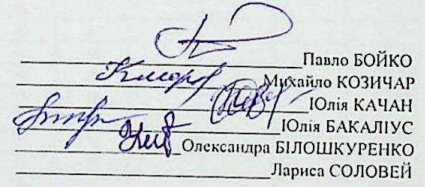 Павло БОЙКО
Михайло КОЗИЧАР
Юлія КАЧАН
Юлія БАКАЛІУС
Олександра БІЛОШКУРЕНКО
Лариса СОЛОВЕЙ